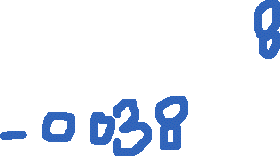 8
- 0 038